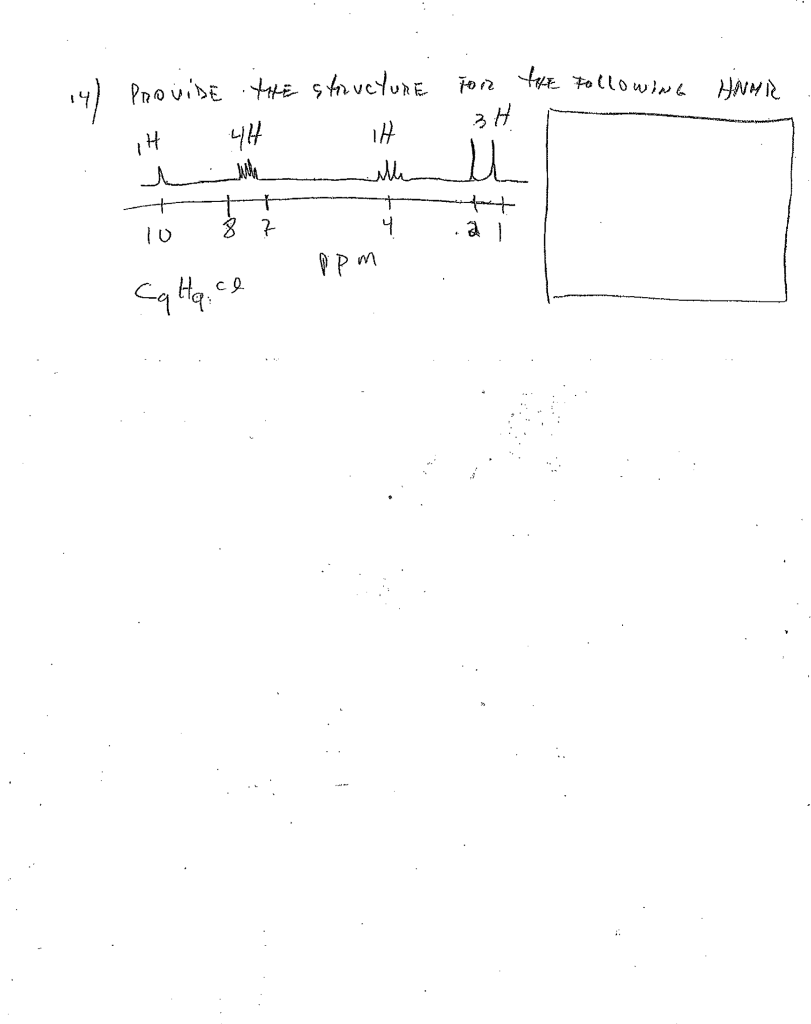 14) PROVIDE THE STRUCTURE FOR THE FOLLOWING HNMR
1H 4H 1H 3H
10 8 7 4 2 1
ppm
C9H9Cl